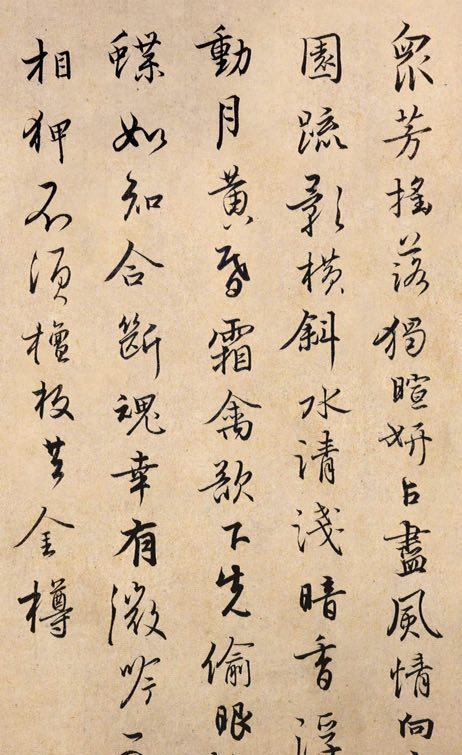 眾芳搖落獨暄妍占盡風情向
園疏影橫斜水清淺暗香浮
動月黃昏霜禽欲下先偷眼
蝶如知合斷魂幸有微吟可
相狎不須檀板共金樽